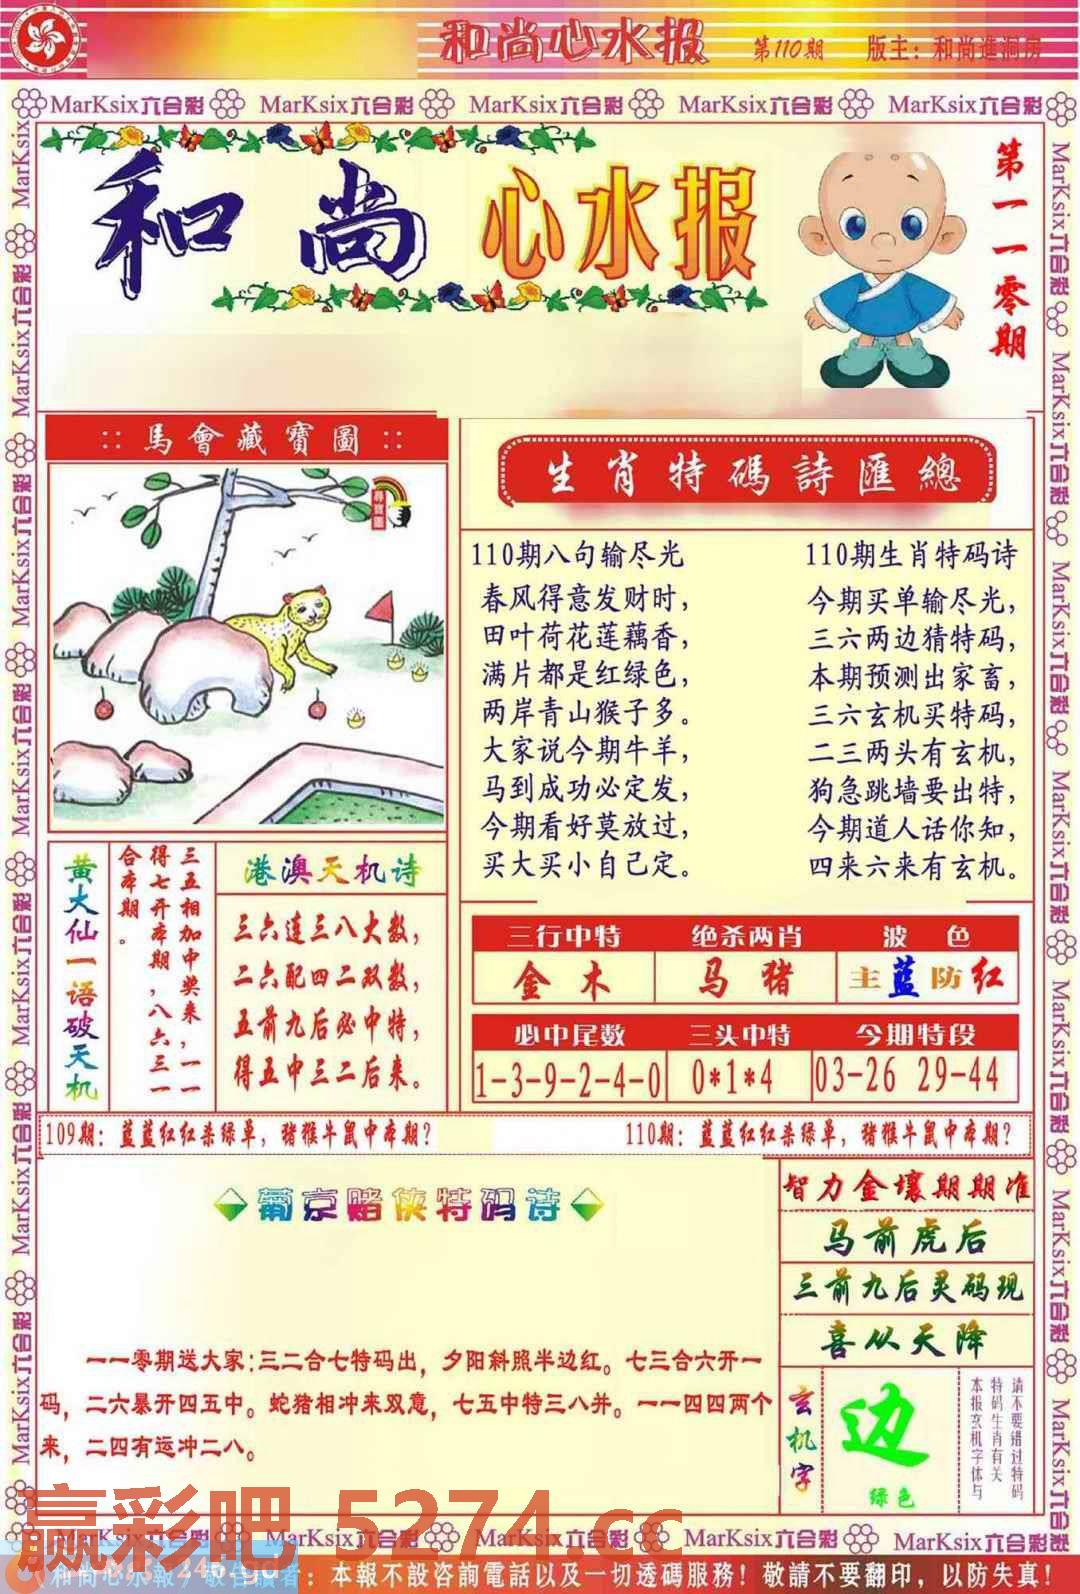 和尚心水报 第110期 版主：和尚進洞房
MarKsix六合彩 MarKsix六合彩 MarKsix六合彩 MarKsix六合彩 MarKsix六合彩
和尚心水报
第一一零期
:: 馬會藏寶圖 ::
尋寶圖
生肖特碼詩匯總
110期八句输尽光
春风得意发财时，
田叶荷花莲藕香，
满片都是红绿色，
两岸青山猴子多。
大家说今期牛羊，
马到成功必定发，
今期看好莫放过，
买大买小自己定。
110期生肖特码诗
今期买单输尽光，
三六两边猜特码，
本期预测出家畜，
三六玄机买特码，
二三两头有玄机，
狗急跳墙要出特，
今期道人话你知，
四来六来有玄机。
黄大仙一语破天机
三五相加中奖来，一一
得七开本期，八六三一
合本期。
港澳天机诗
三六连三八大数，
二六配四二双数，
五前九后必中特，
得五中三二后来。
三行中特 绝杀两肖 波色
金木 马猪 主蓝防红
必中尾数 三头中特 今期特段
1-3-9-2-4-0 0*1*4 03-26 29-44
109期：蓝蓝红红杀绿单，猪猴牛鼠中本期？
110期：蓝蓝红红杀绿单，猪猴牛鼠中本期？
葡京赌侠特码诗
一一零期送大家：三二合七特码出，夕阳斜照半边红。七三合六开一
码，二六暴开四五中。蛇猪相冲来双意，七五中特三八并。一一四四两个
来，二四有运冲二八。
智力金壤期期准
马前虎后
三前九后灵码现
喜从天降
玄机字
边
绿色
请不要错过特码
特码生肖有关
本报玄机字体与
赢彩吧 5274.cc
MarKsix六合彩 MarKsix六合彩 MarKsix六合彩 MarKsix六合彩 MarKsix六合彩
和尚心水報 敬告讀者：本報不設咨詢電話以及一切透碼服務！敬請不要翻印，以防失真！